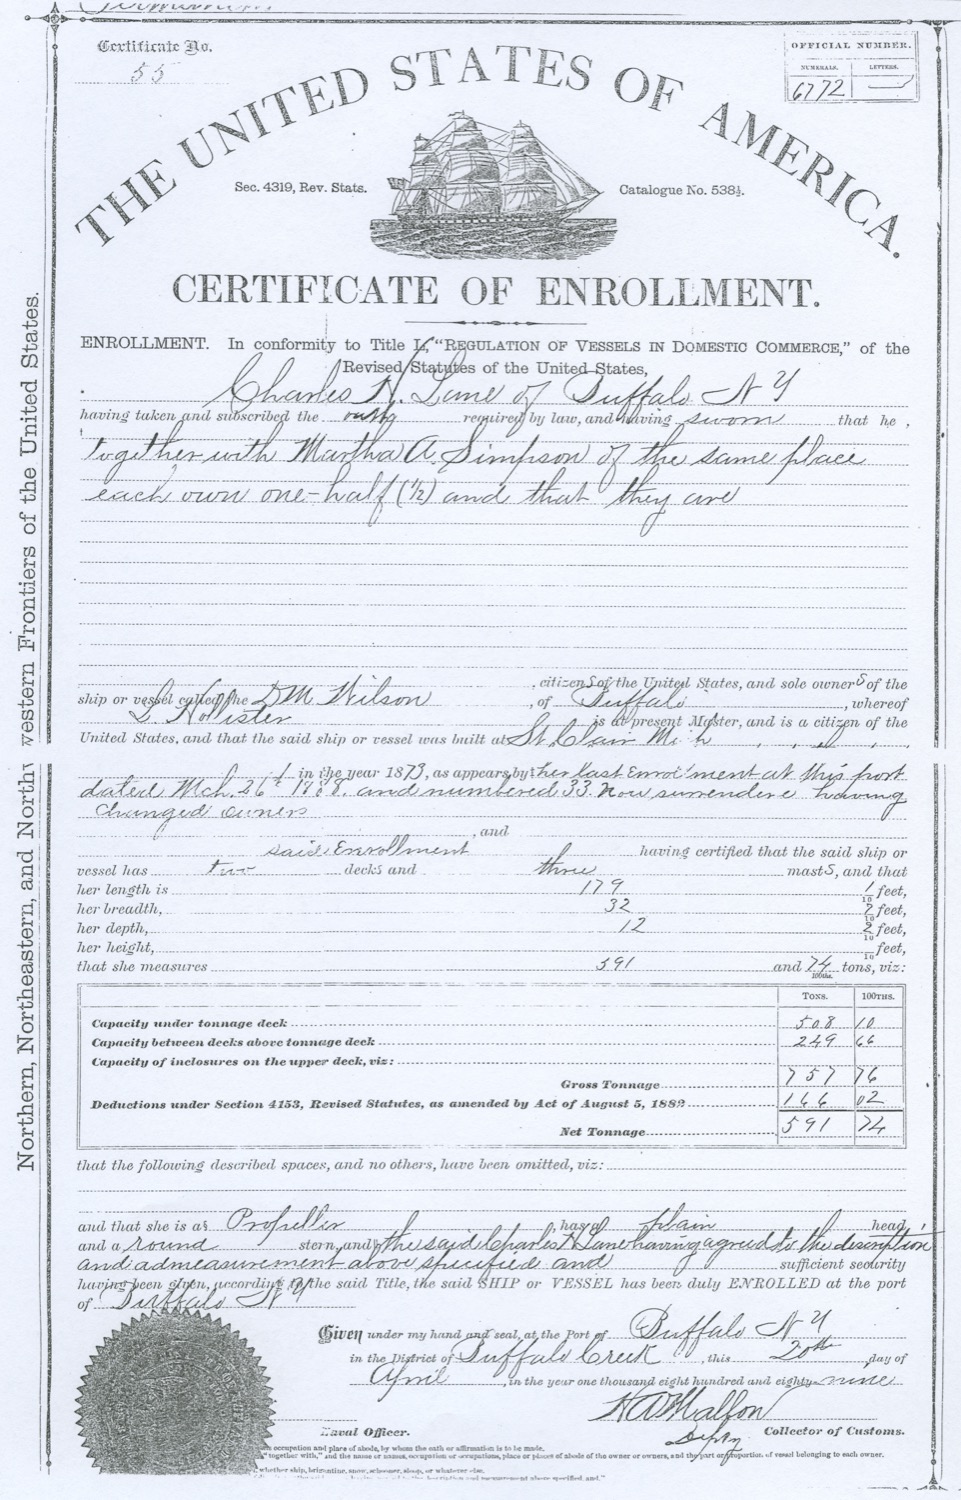 Certificate No.
55
OFFICIAL NUMBER.
NUMERALS. LETTERS.
6772
THE UNITED STATES OF AMERICA.
Sec. 4319, Rev. Stats.
Catalogue No. 538½.
CERTIFICATE OF ENROLLMENT.
ENROLLMENT. In conformity to Title L, "REGULATION OF VESSELS IN DOMESTIC COMMERCE," of the
Revised Statutes of the United States,
Charles H. Lane of Buffalo N Y
having taken and subscribed the oath required by law, and having sworn that he,
together with Martha A. Simpson of the same place
each own one-half (½) and that they are
citizens of the United States, and sole owners of the
ship or vessel called the D M. Wilson, of Buffalo, whereof
L Hollister is at present Master, and is a citizen of the
United States, and that the said ship or vessel was built at St. Clair Mich
in the year 1873, as appears by her last Enrollment at this port
dated Mch. 26th 1888. and numbered 33. Now surrendered having
changed owners
, and
said Enrollment having certified that the said ship or
vessel has two decks and three masts, and that
her length is 179 1/10 feet,
her breadth, 32 7/10 feet,
her depth, 12 2/10 feet,
her height, /10 feet,
that she measures 591 and 74/100ths. tons, viz:
TONS. 100THS.
Capacity under tonnage deck 508 10
Capacity between decks above tonnage deck 249 66
Capacity of inclosures on the upper deck, viz:
Gross Tonnage 757 76
Deductions under Section 4153, Revised Statutes, as amended by Act of August 5, 1882 166 02
Net Tonnage 591 74
that the following described spaces, and no others, have been omitted, viz:
and that she is a Propeller, has a plain head,
and a round stern, and the said Charles H Lane having agreed to the description
and admeasurement above specified and sufficient security
having been given, according to the said Title, the said SHIP or VESSEL has been duly ENROLLED at the port
of Buffalo N Y
Given under my hand and seal, at the Port of Buffalo N Y
in the District of Buffalo Creek, this 20th day of
April, in the year one thousand eight hundred and eighty-nine
Naval Officer.
Depty Collector of Customs.
occupation and place of abode, by whom the oath or affirmation is to be made.
"together with," and the name or names, occupation or occupations, place or places of abode of the owner or owners, and the part or proportion of vessel belonging to each owner.
whether ship, brigantine, snow, schooner, sloop, or whatever else.
Northern, Northeastern, and Northwestern Frontiers of the United States.